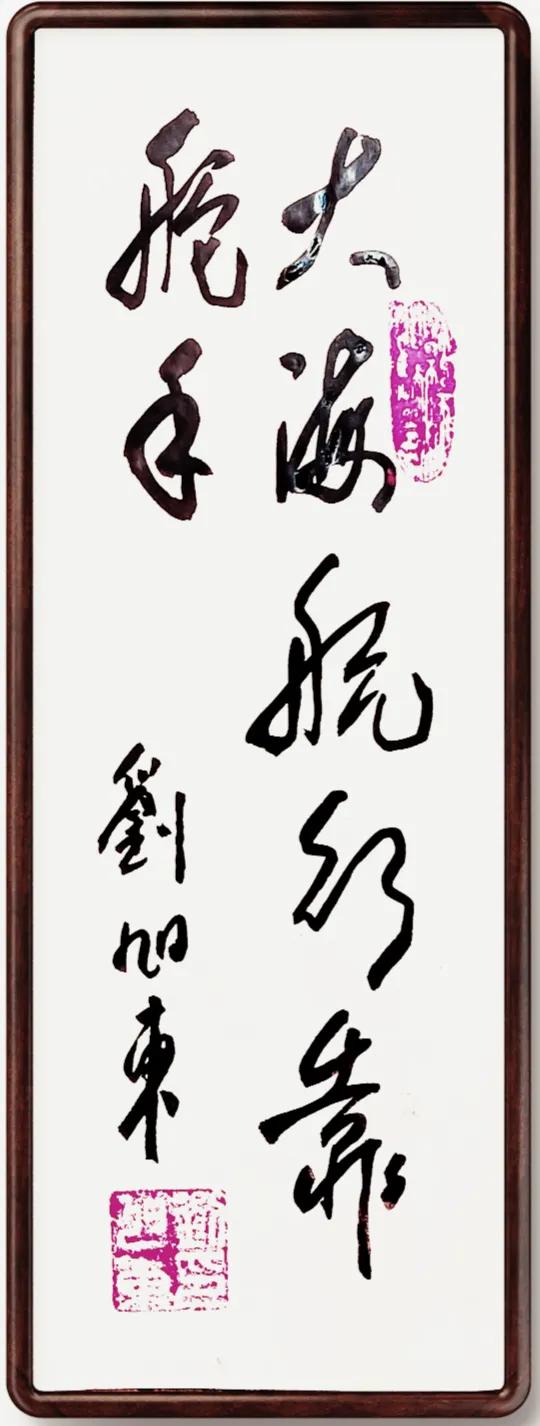 大海航行靠
舵手
劉旭東